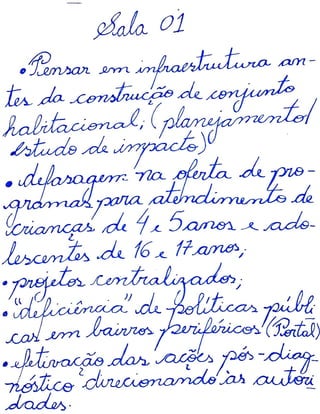 Sala 01
• Pensar em infraestrutura an-
tes da construcção de conjunto
habitacional; (planejamento/
estudo de impacto)
• defasagem na oferta de pro-
gramas para atendimento de
crianças de 4 e 5 anos e ado-
lescentes de 16 e 17 anos;
• projetos centralizados;
• "deficiência" de políticas públi
cas em bairros periféricos (Portal)
• efetivação das ações pós-diag-
nóstico direcionando às autori
dades.